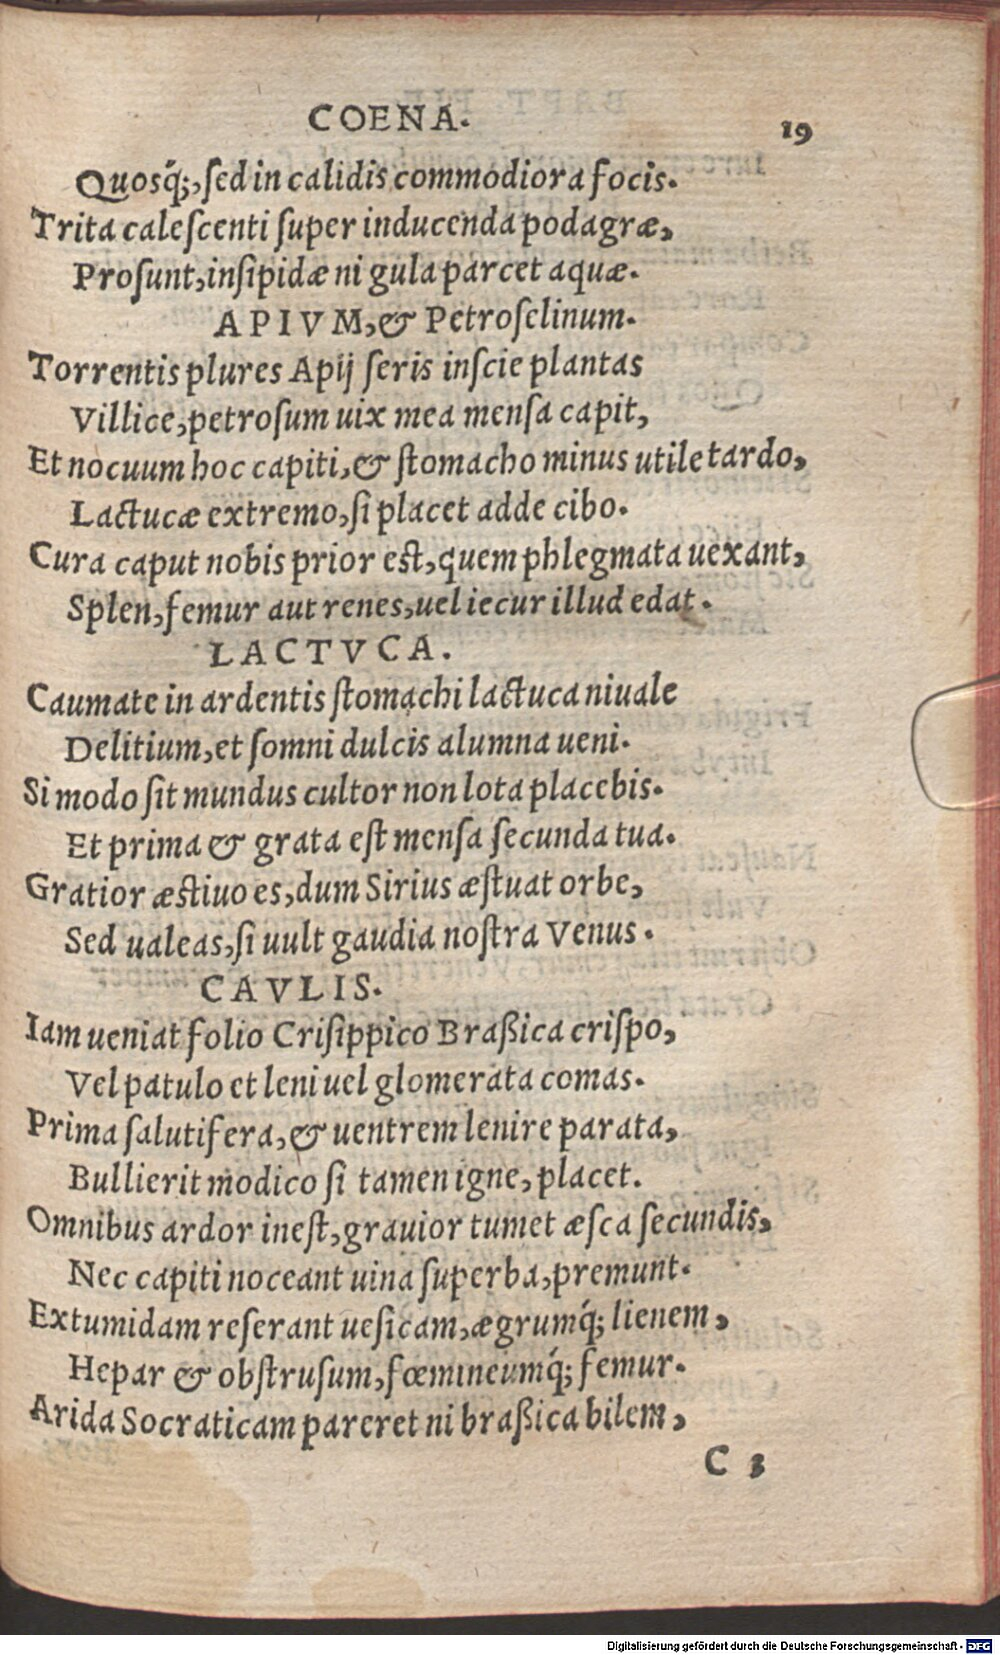 COENA. 19
Quosq́;, ſed in calidis commodiora focis.
Trita caleſcenti ſuper inducenda podagræ,
Proſunt, inſipidæ ni gula parcet aquæ.
APIVM, & Petroſelinum.
Torrentis plures Apij ſeris inſcie plantas
Villice, petroſum uix mea menſa capit,
Et nocuum hoc capiti, & ſtomacho minus utile tardo,
Lactucæ extremo, ſi placet adde cibo.
Cura caput nobis prior eſt, quem phlegmata uexant,
Splen, femur aut renes, uel iecur illud edat.
LACTVCA.
Caumate in ardentis ſtomachi lactuca niuale
Delitium, et ſomni dulcis alumna ueni.
Si modo ſit mundus cultor non lota placebis.
Et prima & grata eſt menſa ſecunda tua.
Gratior æſtiuo es, dum Sirius æſtuat orbe,
Sed ualeas, ſi uult gaudia noſtra Venus.
CAVLIS.
Iam ueniat folio Criſippico Braßica criſpo,
Vel patulo et leni uel glomerata comas.
Prima ſalutifera, & uentrem lenire parata,
Bullierit modico ſi tamen igne, placet.
Omnibus ardor ineſt, grauior tumet æſca ſecundis,
Nec capiti noceant uina ſuperba, premunt.
Extumidam reſerant ueſicam, ægrumq́; lienem,
Hepar & obſtruſum, fœmineumq́; femur.
Arida Socraticam pareret ni braßica bilem,
C 3
Digitalisierung gefördert durch die Deutsche Forschungsgemeinschaft - DFG